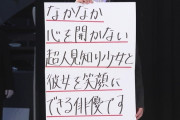 なかなか
心を開かない
超人見知り少女と
彼女を笑顔に
できる俳優です